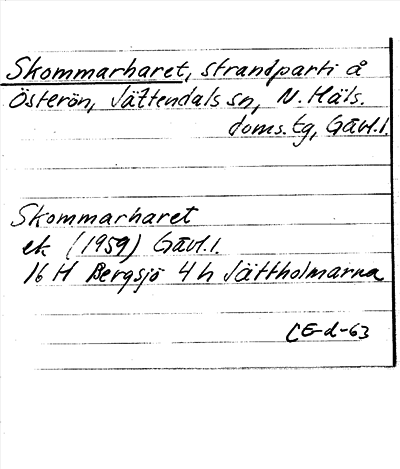 Skommarharet, strandparti å
Österön, Jättendals sn, N. Häls.
doms.tg, Gävl.l.
Skommarharet
ek (1959) Gävl.l.
16 H Bergsjö 4 h Jättholmarna
CE-d-63